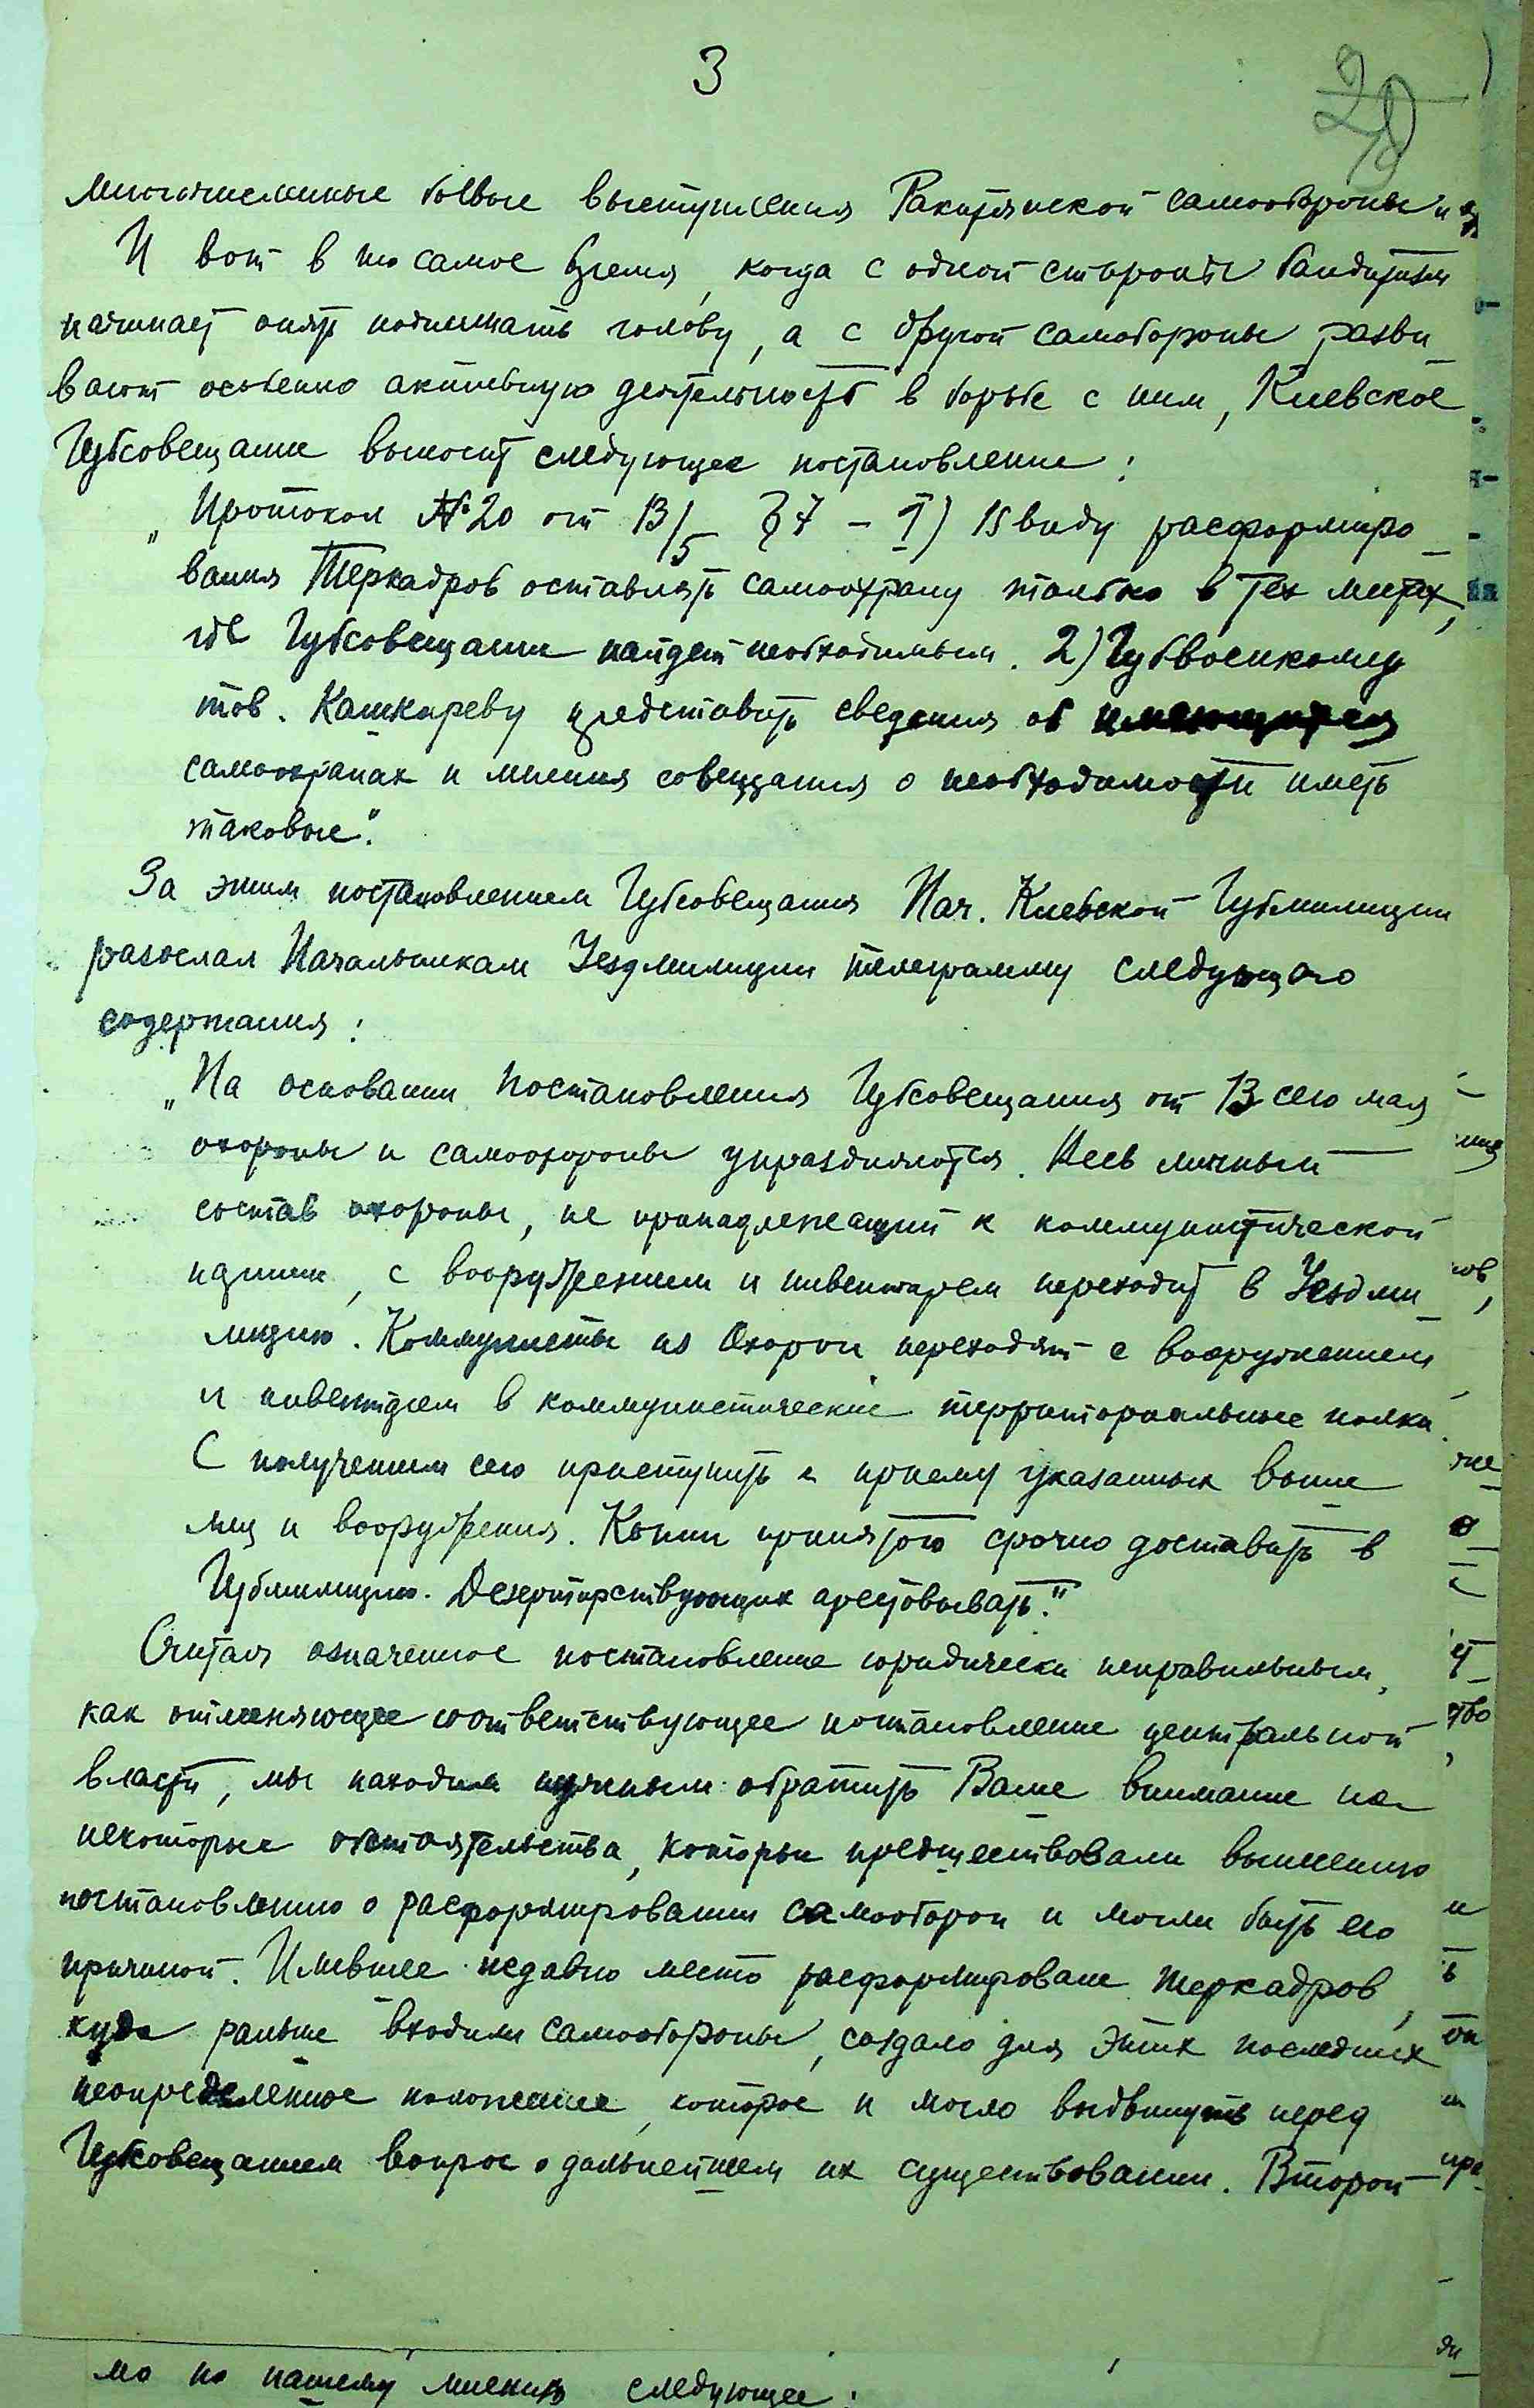 3
28
многочисленные боевые выступления Ракитянской самообороны и
И вот в то самое время, когда с одной стороны бандитизм
начинает опять поднимать голову, а с другой самообороны разви
вают особенно активную деятельность в борьбе с ним, Киевское
Губсовещание выносит следующее постановление:
„Протокол № 20 от 13/5 § 7 – 1) Ввиду расформиро
вания Теркадров оставлять самоохрану только в тех местах,
где Губсовещание найдет необходимым. 2) Губвоенкому
тов. Кашкареву представить сведения об имеющихся
самоохранах и мнения совещания о необходимости иметь
таковые".
За этим постановлением Губсовещания Нач. Киевской Губмилиции
разослал Начальникам Уездмилиции телеграмму следующего
содержания:
„На основании постановления Губсовещания от 13 сего мая
охороны и самоохороны упраздняются. Весь личный
состав охороны, не принадлежащий к коммунистической
партии, с вооружением и инвентарем переходит в Уездми
лицию. Коммунисты из Охорон переходят с вооружением
и инвентарем в коммунистические территориальные полки.
С получением сего приступить к приему указанных выше
лиц и вооружения. Копии принятого срочно доставить в
Губмилицию. Дезертирствующих арестовывать."
Считая означенное постановление юридически неправильным,
как отменяющее соответствующее постановление центральной
власти, мы находим нужным обратить Ваше внимание на
некоторые обстоятельства, которые предшествовали вынесению
постановлению о расформировании самооборон и могли быть его
причиной. Имевшее недавно место расформирование теркадров,
куда раньше входили самообороны, создало для этих последних
неопределенное положение, которое и могло выдвинуть перед
Губсовещанием вопрос о дальнейшем их существовании. Второй
мо по нашему мнению следующее: